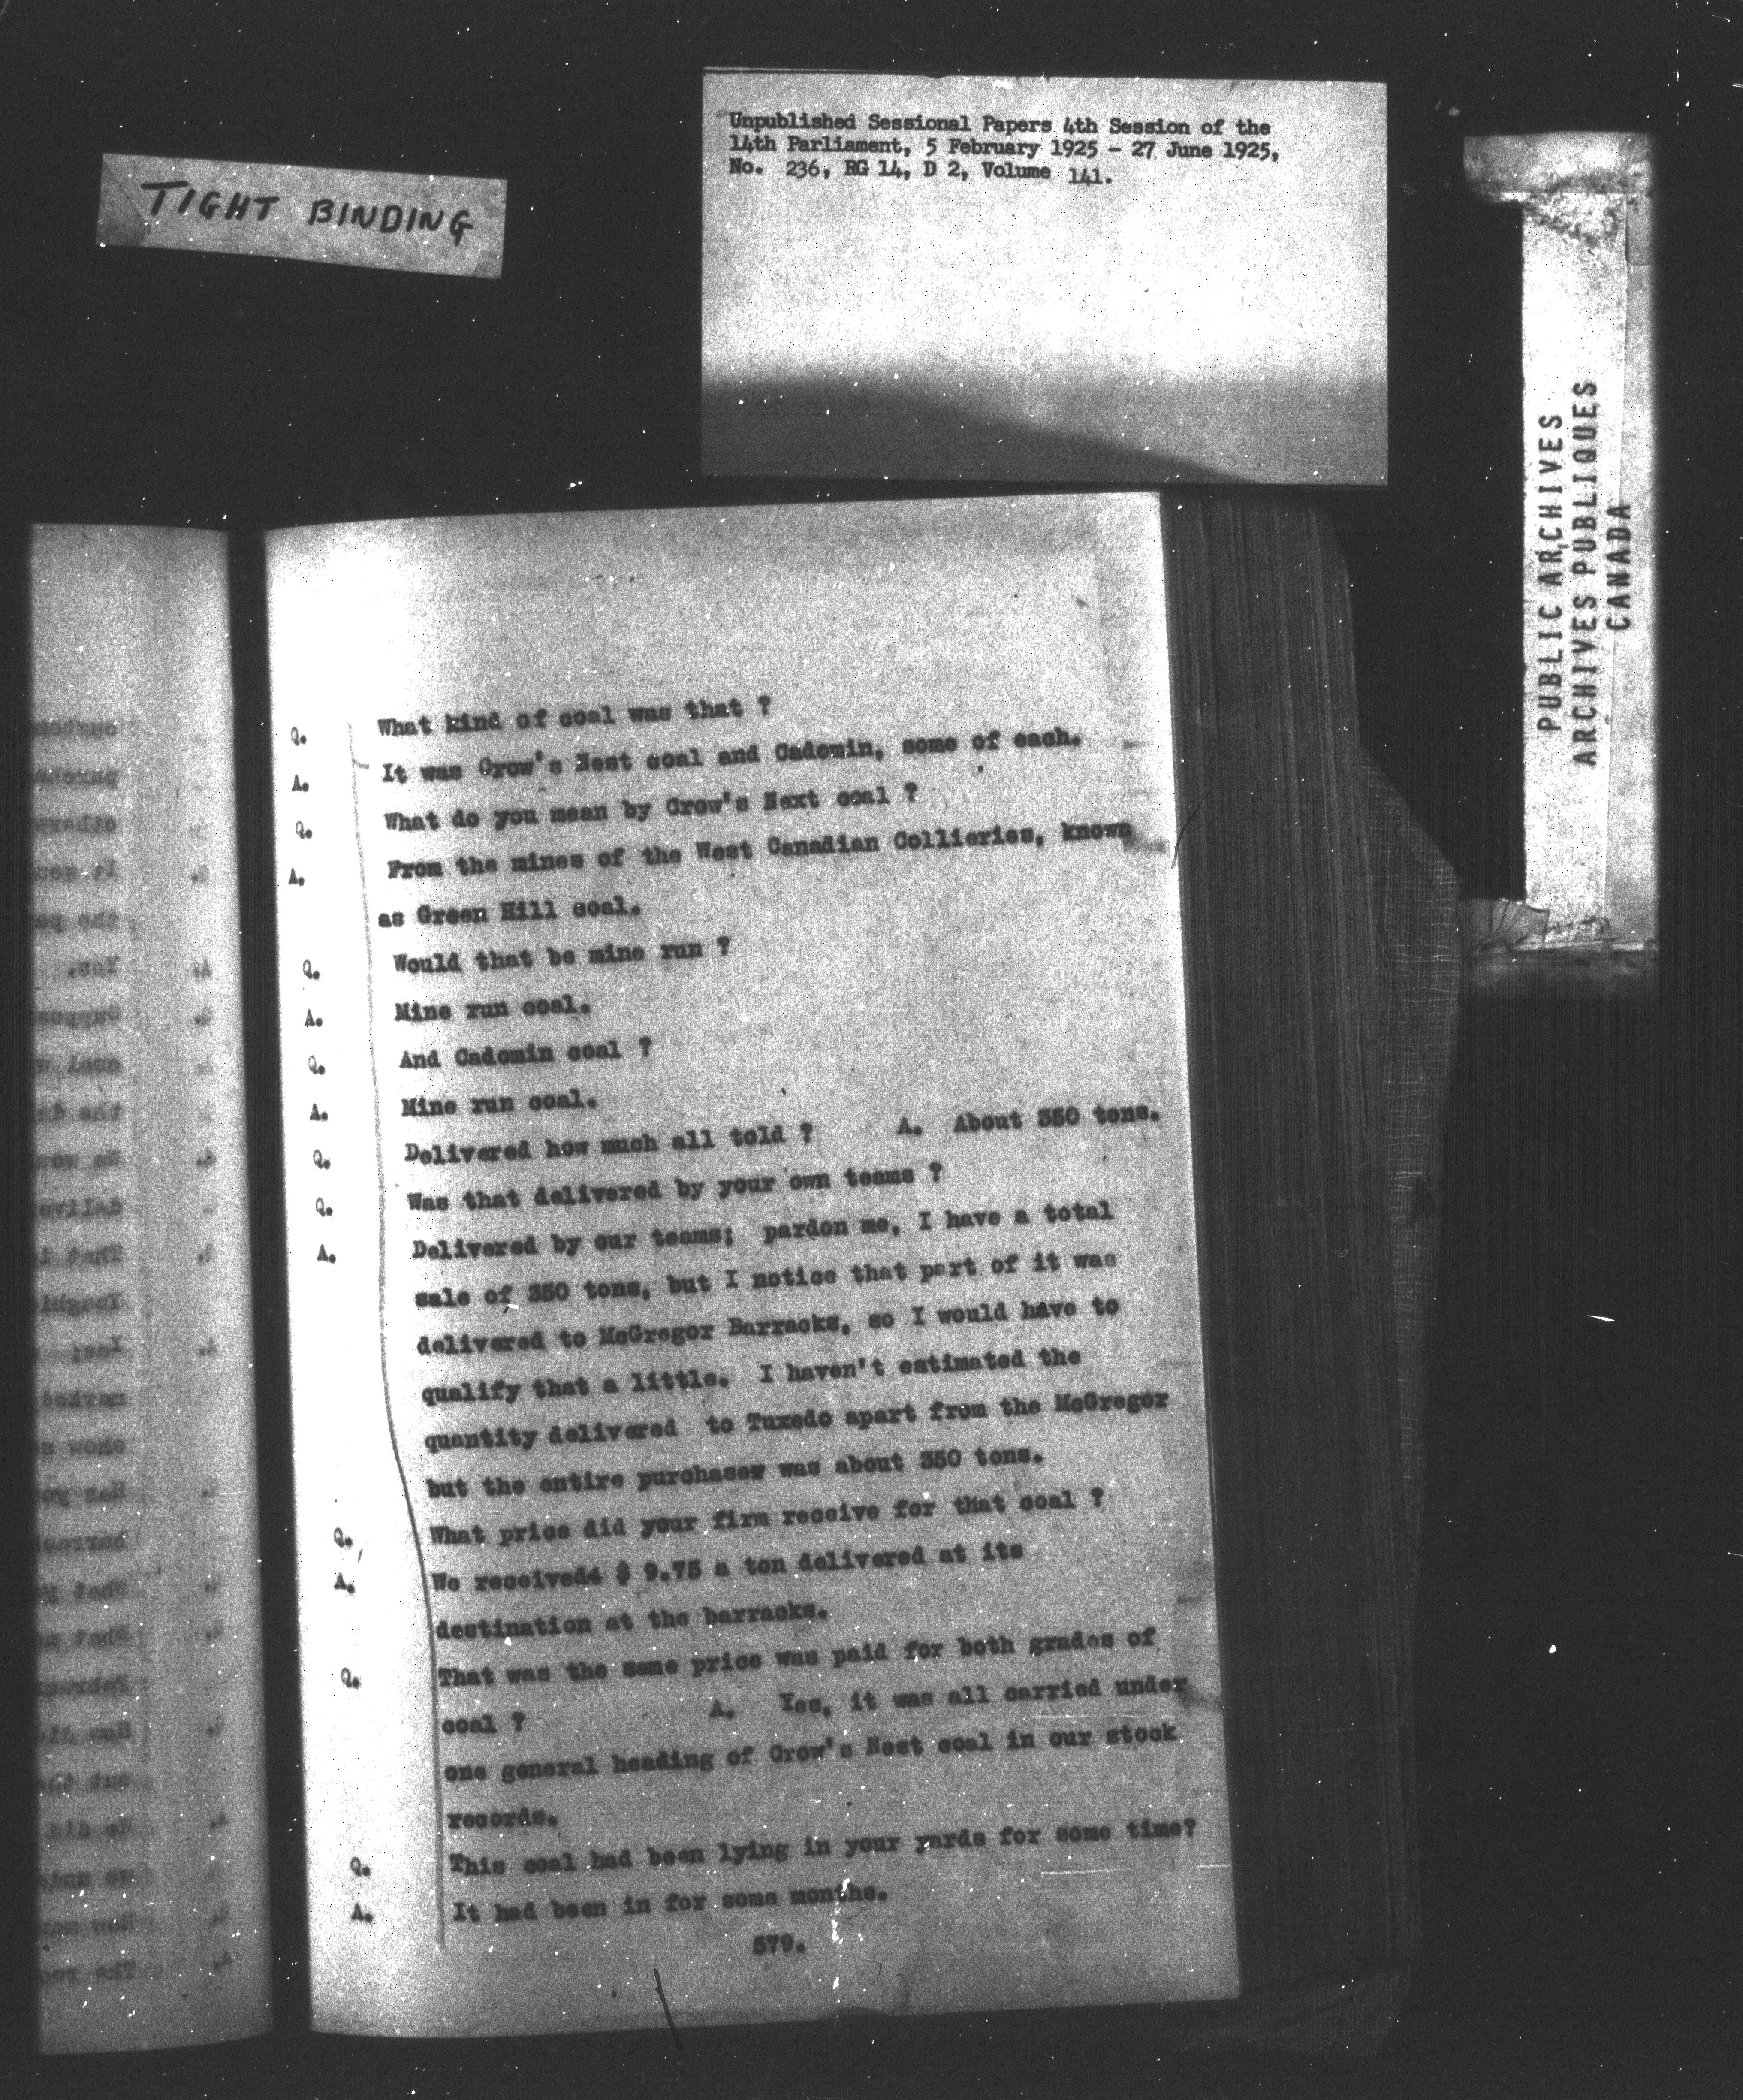 TIGHT BINDING
Unpublished Sessional Papers 4th Session of the
14th Parliament, 5 February 1925 - 27 June 1925,
No. 236, RG 14, D 2, Volume 141.
PUBLIC ARCHIVES
ARCHIVES PUBLIQUES
CANADA
Q. What kind of coal was that ?
A. It was Crow's Nest coal and Cadomin, some of each.
Q. What do you mean by Crow's Next coal ?
A. From the mines of the West Canadian Collieries, known
as Green Hill coal.
Q. Would that be mine run ?
A. Mine run coal.
Q. And Cadomin coal ?
A. Mine run coal.
Q. Delivered how much all told ? A. About 350 tons.
Q. Was that delivered by your own teams ?
A. Delivered by our teams; pardon me, I have a total
sale of 350 tons, but I notice that part of it was
delivered to McGregor Barracks, so I would have to
qualify that a little. I haven't estimated the
quantity delivered to Tuxedo apart from the McGregor
but the entire purchases was about 350 tons.
Q. What price did your firm receive for that coal ?
A. We received $ 9.75 a ton delivered at its
destination at the barracks.
Q. That was the same price was paid for both grades of
coal ? A. Yes, it was all carried under
one general heading of Crow's Nest coal in our stock
records.
Q. This coal had been lying in your yards for some time?
A. It had been in for some months.
579.